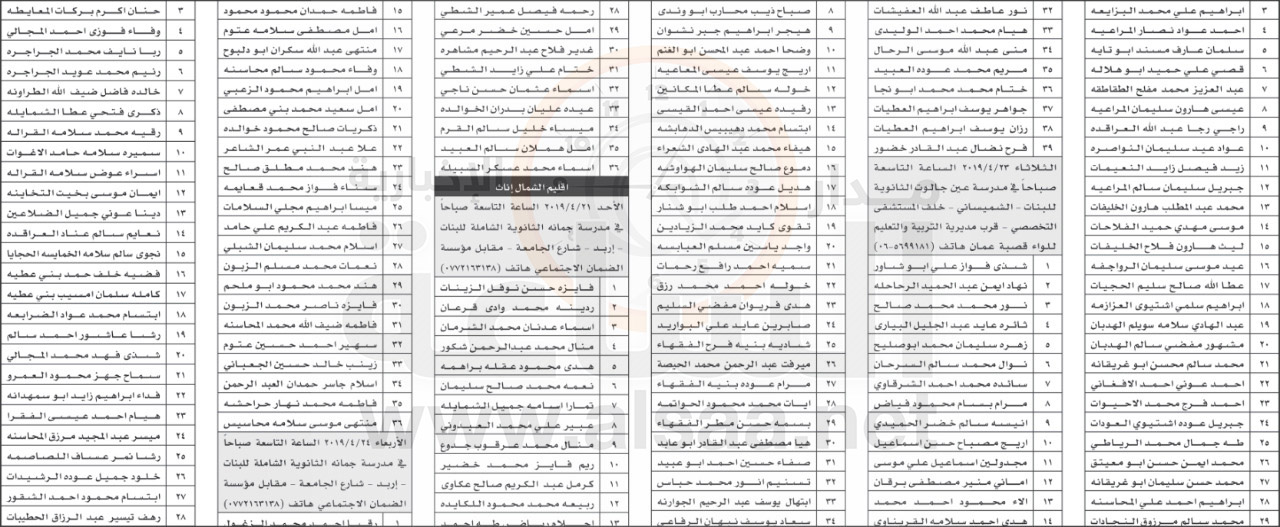 ٣ ابراهيم علي محمد البزايعه
٤ احمد عواد نصار المراعيه
٥ سلمان عارف مسند ابو تايه
٦ قصي علي حميد ابو هلاله
٧ عبد العزيز محمد مفلح الطقاطقه
٨ عيسى هارون سليمان المراعيه
٩ راجي رجا عبد الله العراقده
١٠ عواد عيد سليمان النواصره
١١ زيد فيصل زايد النعيمات
١٢ جبريل سليمان سالم المراعيه
١٣ محمد عبد المطلب هارون الخليفات
١٤ موسى مهدي حميد الفلاحات
١٥ ليث هارون فلاح الخليفات
١٦ عيد موسى سليمان الرواجفه
١٧ عطا الله صالح سليم الحجيات
١٨ ابراهيم سلمي اشتيوي العزازمه
١٩ عبد الهادي سلامه سويلم الهدبان
٢٠ مشهور مفضي سالم الهدبان
٢١ محمد سالم محمد ابو غريقانه
٢٢ احمد عوني احمد الافغاني
٢٣ احمد فرج محمد الاحيوات
٢٤ جبريل عوده اشتيوي العودات
٢٥ طه جمال محمد الرياطي
٢٦ محمد ايمن حسن ابو معيتق
٢٧ محمد حسن سليمان ابو غريقانه
٢٨ ابراهيم احمد علي المحاسنه
٢٩ محمد سالم مرزوق النجادات
٣٢ نور عاطف عبد الله العفيشات
٣٣ هيام محمد احمد الوليدي
٣٤ منى عبد الله موسى الرحال
٣٥ مريم محمد عوده العبيد
٣٦ ختام محمد محمد ابو نجا
٣٧ جواهر يوسف ابراهيم العطيات
٣٨ رزان يوسف ابراهيم العطيات
٣٩ فرح نضال عبد القادر خضور
الثلاثاء ٢٠١٩/٤/٢٣ الساعة التاسعة
صباحاً في مدرسة عين جالوت الثانوية
للبنات - الشميساني - خلف المستشفى
التخصصي - قرب مديرية التربية والتعليم
للواء قصبة عمان هاتف (٥٦٩٩١٨١-٠٦)
١ شذى فواز علي ابو شاور
٢ نهاد ايمن عبد الحميد الرحاحله
٣ نور محمد محمد صالح
٤ ثائره عايد عبد الجليل البياري
٥ زهره سليمان محمد ابوصليح
٦ نوال محمد سالم السرحان
٧ سائده محمد احمد الشرقاوي
٨ مرام بسام محمود فياض
٩ انيسه سالم خضر الحميدي
١٠ اريج مصباح حسن اسماعيل
١١ مجدولين اسماعيل علي موسى
١٢ اماني منير مصطفى برقان
١٣ الاء محمود احمد محمد
١٤ هدى احمد سلامه القريناوي
٨ صباح ذيب محارب ابو وندي
٩ هيجر ابراهيم جبر نشوان
١٠ وضحا احمد عبد المحسن ابو الغنم
١١ اريج يوسف عيسى المعاعيه
١٢ خوله سالم عطا المكانين
١٣ رفيده عيسى احمد القيسي
١٤ ابتسام محمد دهيبيس الدهابشه
١٥ هيفاء محمد عبد الهادي الشعراء
١٦ دموع صالح سليمان الهواوشه
١٧ هديل عوده سالم الشوابكه
١٨ اسلام احمد طلب ابو شنار
١٩ تقوى كايد محمد الزيادين
٢٠ واجد ياسين مسلم العبابسه
٢١ سميه احمد رافع رحمات
٢٢ خوله احمد محمد رزق
٢٣ هدى فريوان مفضي السليم
٢٤ صابرين عايد علي البواريد
٢٥ شاديه بنيه فرح الفقهاء
٢٦ ميرفت عبد الرحمن محمد الحيصة
٢٧ مرام عوده بنيه الفقهاء
٢٨ ايات محمد محمود الحواتمه
٢٩ بسمه حسن مطر الفقهاء
٣٠ هيا مصطفى عبد القادر ابو عابد
٣١ صفاء حسين احمد ابو عبيد
٣٢ تسنيم انور محمد حباس
٣٣ ابتهال يوسف عبد الرحيم الجوارنه
٣٤ سعاد يوسف نبهان الرفاعي
٢٨ رحمه فيصل عمير الشطي
٢٩ امل حسين خضر مرعي
٣٠ غدير فلاح عبد الرحيم مشاهره
٣١ ختام علي زايد الشطي
٣٢ اسماء عثمان حسن ناجي
٣٣ عبده عليان بدران الخوالده
٣٤ ميساء خليل سالم القرم
٣٥ امل هملان سالم العبيد
٣٦ اسماء محمد عسكر ابو نبينه
اقليم الشمال إناث
الأحد ٢٠١٩/٤/٢١ الساعة التاسعة صباحاً
في مدرسة جمانه الثانوية الشاملة للبنات
- إربد - شارع الجامعة - مقابل مؤسسة
الضمان الاجتماعي هاتف (٠٧٧٢١٦٣١٣٨)
١ فايزه حسن نوفل الزينات
٢ ردينه محمد وادي قرعان
٣ اسماء عدنان محمد الشرمان
٤ منال محمد عبدالرحمن شكور
٥ هدى محمود عقله براهمه
٦ نعمه محمد صالح سليمان
٧ تمارا اسامه جميل الشمايله
٨ عبير علي محمد العبدوني
٩ منال محمد عرقوب جدوع
١٠ ريم فايز محمد خضير
١١ كرمل عبد الكريم صالح عكاوي
١٢ ربيعه محمود محمود اللكايده
١٣ احلام رياض طه احمد
١٥ فاطمه حمدان محمود محمود
١٦ امل مصطفى سلامه عتوم
١٧ منتهى عبد الله سكران ابو دلبوح
١٨ وفاء محمود سالم محاسنه
١٩ امل ابراهيم محمود الزعبي
٢٠ امل سعيد محمد بني مصطفى
٢١ ذكريات صالح محمود خوالده
٢٢ علا عبد النبي عمر الشاعر
٢٣ سيرين محمد مطلق صالح
٢٤ سناء فواز محمد قعايمه
٢٥ ميسا ابراهيم مجلي السلامات
٢٦ فاطمه عبد الكريم علي حامد
٢٧ اسلام محمد سليمان الشبلي
٢٨ نعمات محمد مسلم الزبون
٢٩ هند محمد محمود ابو ملحم
٣٠ فايزه ناصر محمد الزبون
٣١ فاطمه ضيف الله محمد المحاسنه
٣٢ سهير احمد حسين عتوم
٣٣ زينب خالد حسين الجعباني
٣٤ اسلام جاسر حمدان العبد الرحمن
٣٥ فاطمه محمد نهار حراحشه
٣٦ منتهى موسى سلامه محاسيس
الأربعاء ٢٠١٩/٤/٢٤ الساعة التاسعة صباحاً
في مدرسة جمانه الثانوية الشاملة للبنات
- إربد - شارع الجامعة - مقابل مؤسسة
الضمان الاجتماعي هاتف (٠٧٧٢١٦٣١٣٨)
١ رقيا احمد محمد الزغول
٣ حنان اكرم بركات المعايطه
٤ وفاء فوزي احمد المجالي
٥ ربا نايف محمد الجراجره
٦ رنيم محمد عويد الجراجره
٧ خالده فاضل ضيف الله الطراونه
٨ ذكرى فتحي عطا الشمايله
٩ رقيه محمد سلامه القراله
١٠ سميره سلامه حامد الاغوات
١١ اسراء عوض سلامه القراله
١٢ ايمان موسى بخيت التخاينه
١٣ دينا عوني جميل الضلاعين
١٤ نعايم سالم عناد العراقده
١٥ نجوى سالم سلامه الخمايسه الحجايا
١٦ فضيه خلف حمد بني عطيه
١٧ كامله سلمان امسيب بني عطيه
١٨ ابتسام محمد عواد الضرابعه
١٩ رشا عاشور احمد سالم
٢٠ شذى فهد محمد المجالي
٢١ سماح جهز محمود العمرو
٢٢ فداء ابراهيم زايد ابو سمهدانه
٢٣ هيام احمد عيسى الفقرا
٢٤ ميسر عبد المجيد مرزق المحاسنه
٢٥ رشا نمر عساف اللصاصمه
٢٦ خلود جميل عوده الرشيدات
٢٧ ابتسام محمود احمد الشقور
٢٨ رهف تيسير عبد الرزاق الحطيبات
مدار الساعة الإخبارية
www.alsaa.net